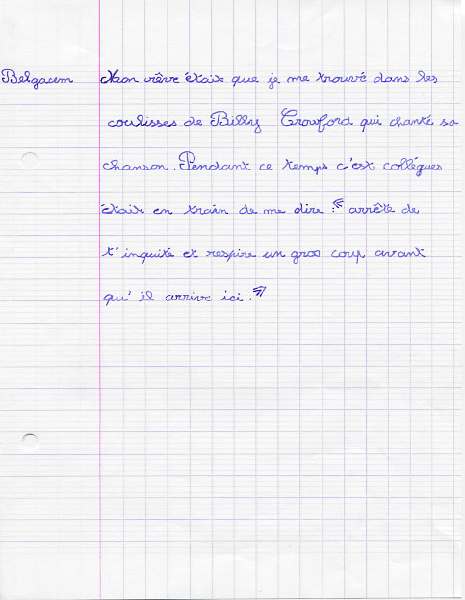 Belgacem Mon rêve était que je me trouvé dans les
coulisses de Billy Crawford qui chanté sa
chanson. Pendant ce temps c'est collègues
était en train de me dire : « arrêté de
t'inquité et respire un gros coup avant
qu'il arrive ici. »